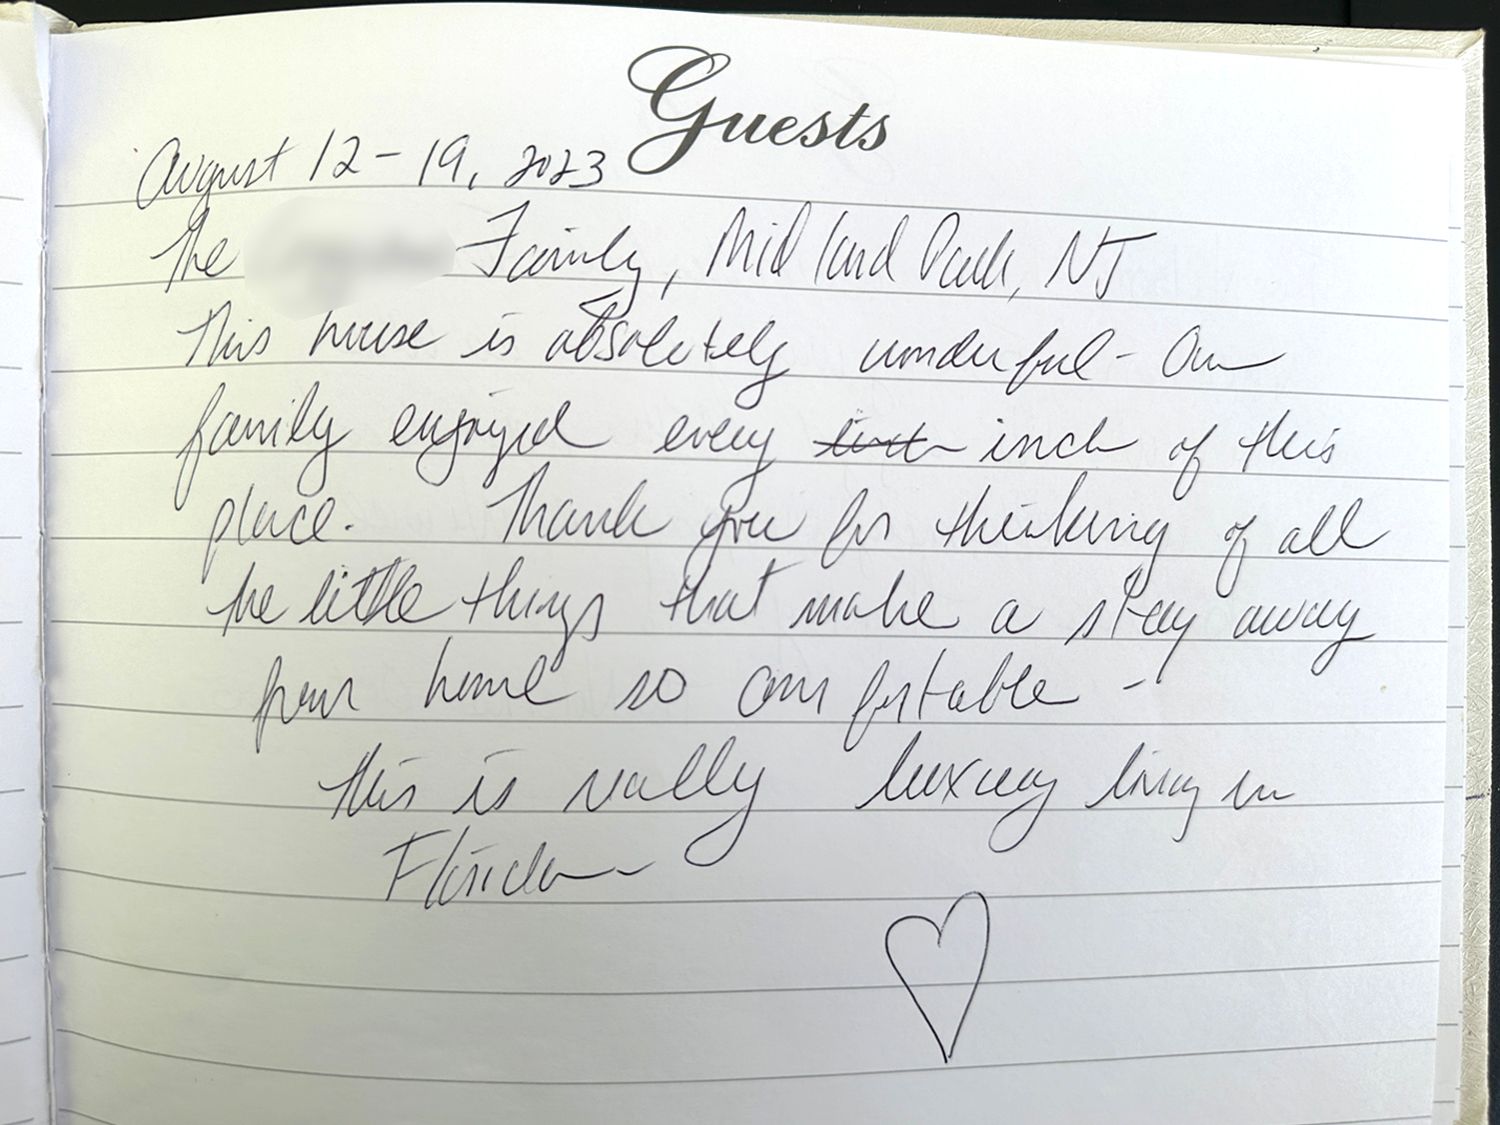 Guests
August 12-19, 2023
The Family, Midland Park, NJ
This house is absolutely wonderful - Our
family enjoyed every inch of this
place. Thank you for thinking of all
the little things that make a stay away
from home so comfortable -
This is really luxury living in
Florida